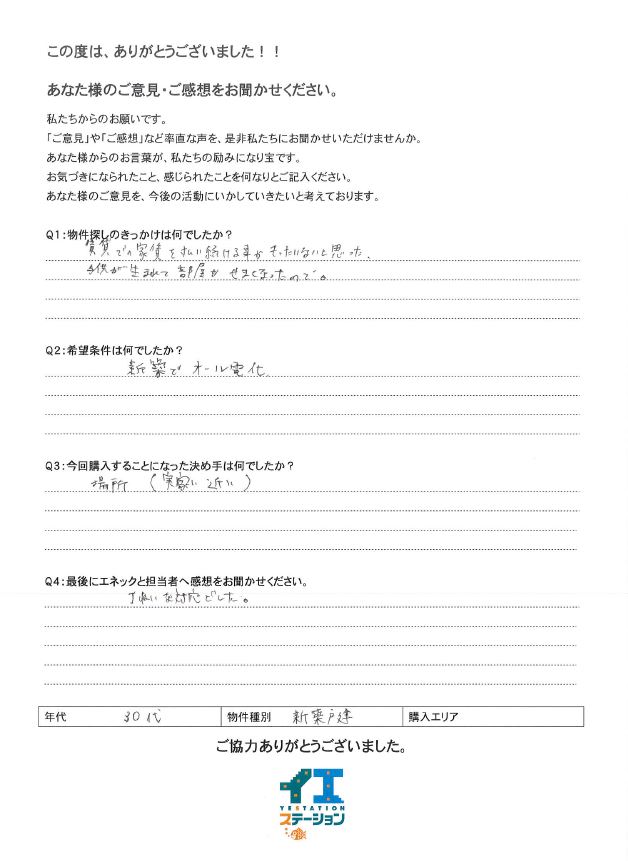 この度は、ありがとうございました！！
あなた様のご意見・ご感想をお聞かせください。
私たちからのお願いです。
「ご意見」や「ご感想」など率直な声を、是非私たちにお聞かせいただけませんか。
あなた様からのお言葉が、私たちの励みになり宝です。
お気づきになられたこと、感じられたことを何なりとご記入ください。
あなた様のご意見を、今後の活動にいかしていきたいと考えております。
Q1：物件探しのきっかけは何でしたか？
賃貸での家賃を払い続ける事がもったいないと思った。
子供が生まれて部屋がせまくなったので。
Q2：希望条件は何でしたか？
新築でオール電化
Q3：今回購入することになった決め手は何でしたか？
場所（実家に近い）
Q4：最後にエネックと担当者へ感想をお聞かせください。
丁ねいな対応でした。
年代 30代 物件種別 新築戸建 購入エリア
ご協力ありがとうございました。
イエ
YESTATION
ステーション